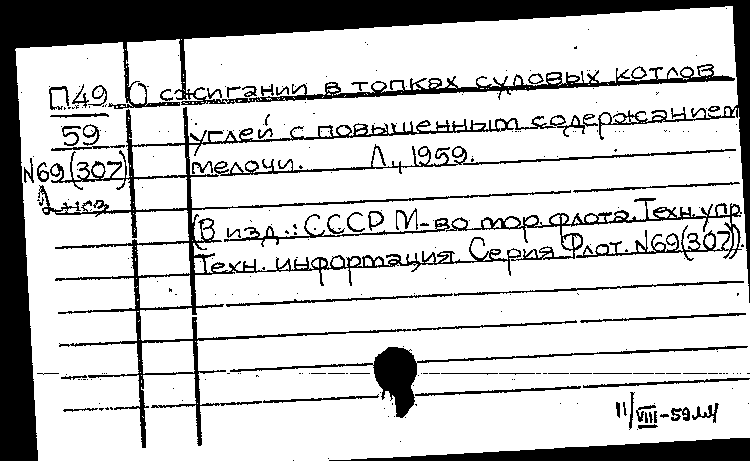 П49 О сжигании в топках судовых котлов
59 углей с повышенным содержанием
N69(307) мелочи. Л., 1959.
2 экз
(В изд.: СССР М-во мор. флота. Техн. упр.
Техн. информация. Серия Флот. N69(307)).
11/VIII-59